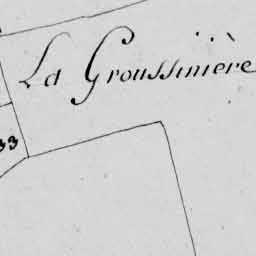 La Groussinière
33